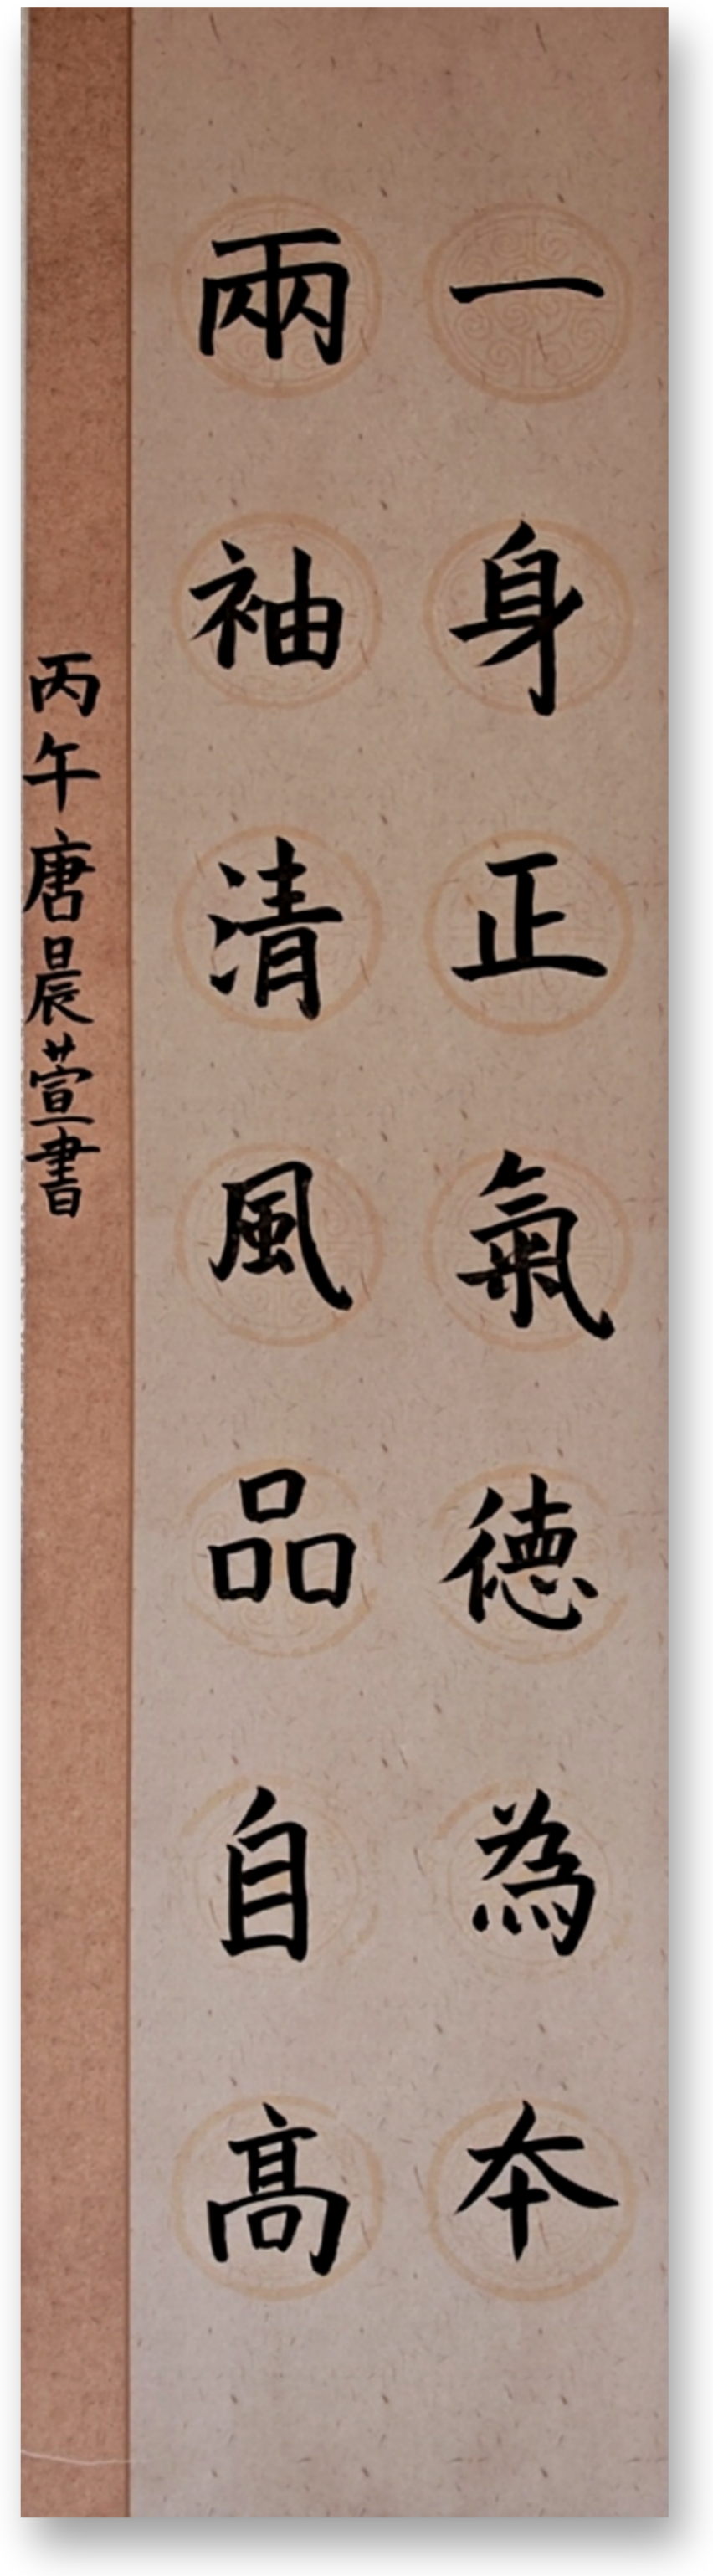 一身正氣德為本
兩袖清風品自高
丙午唐晨萱書